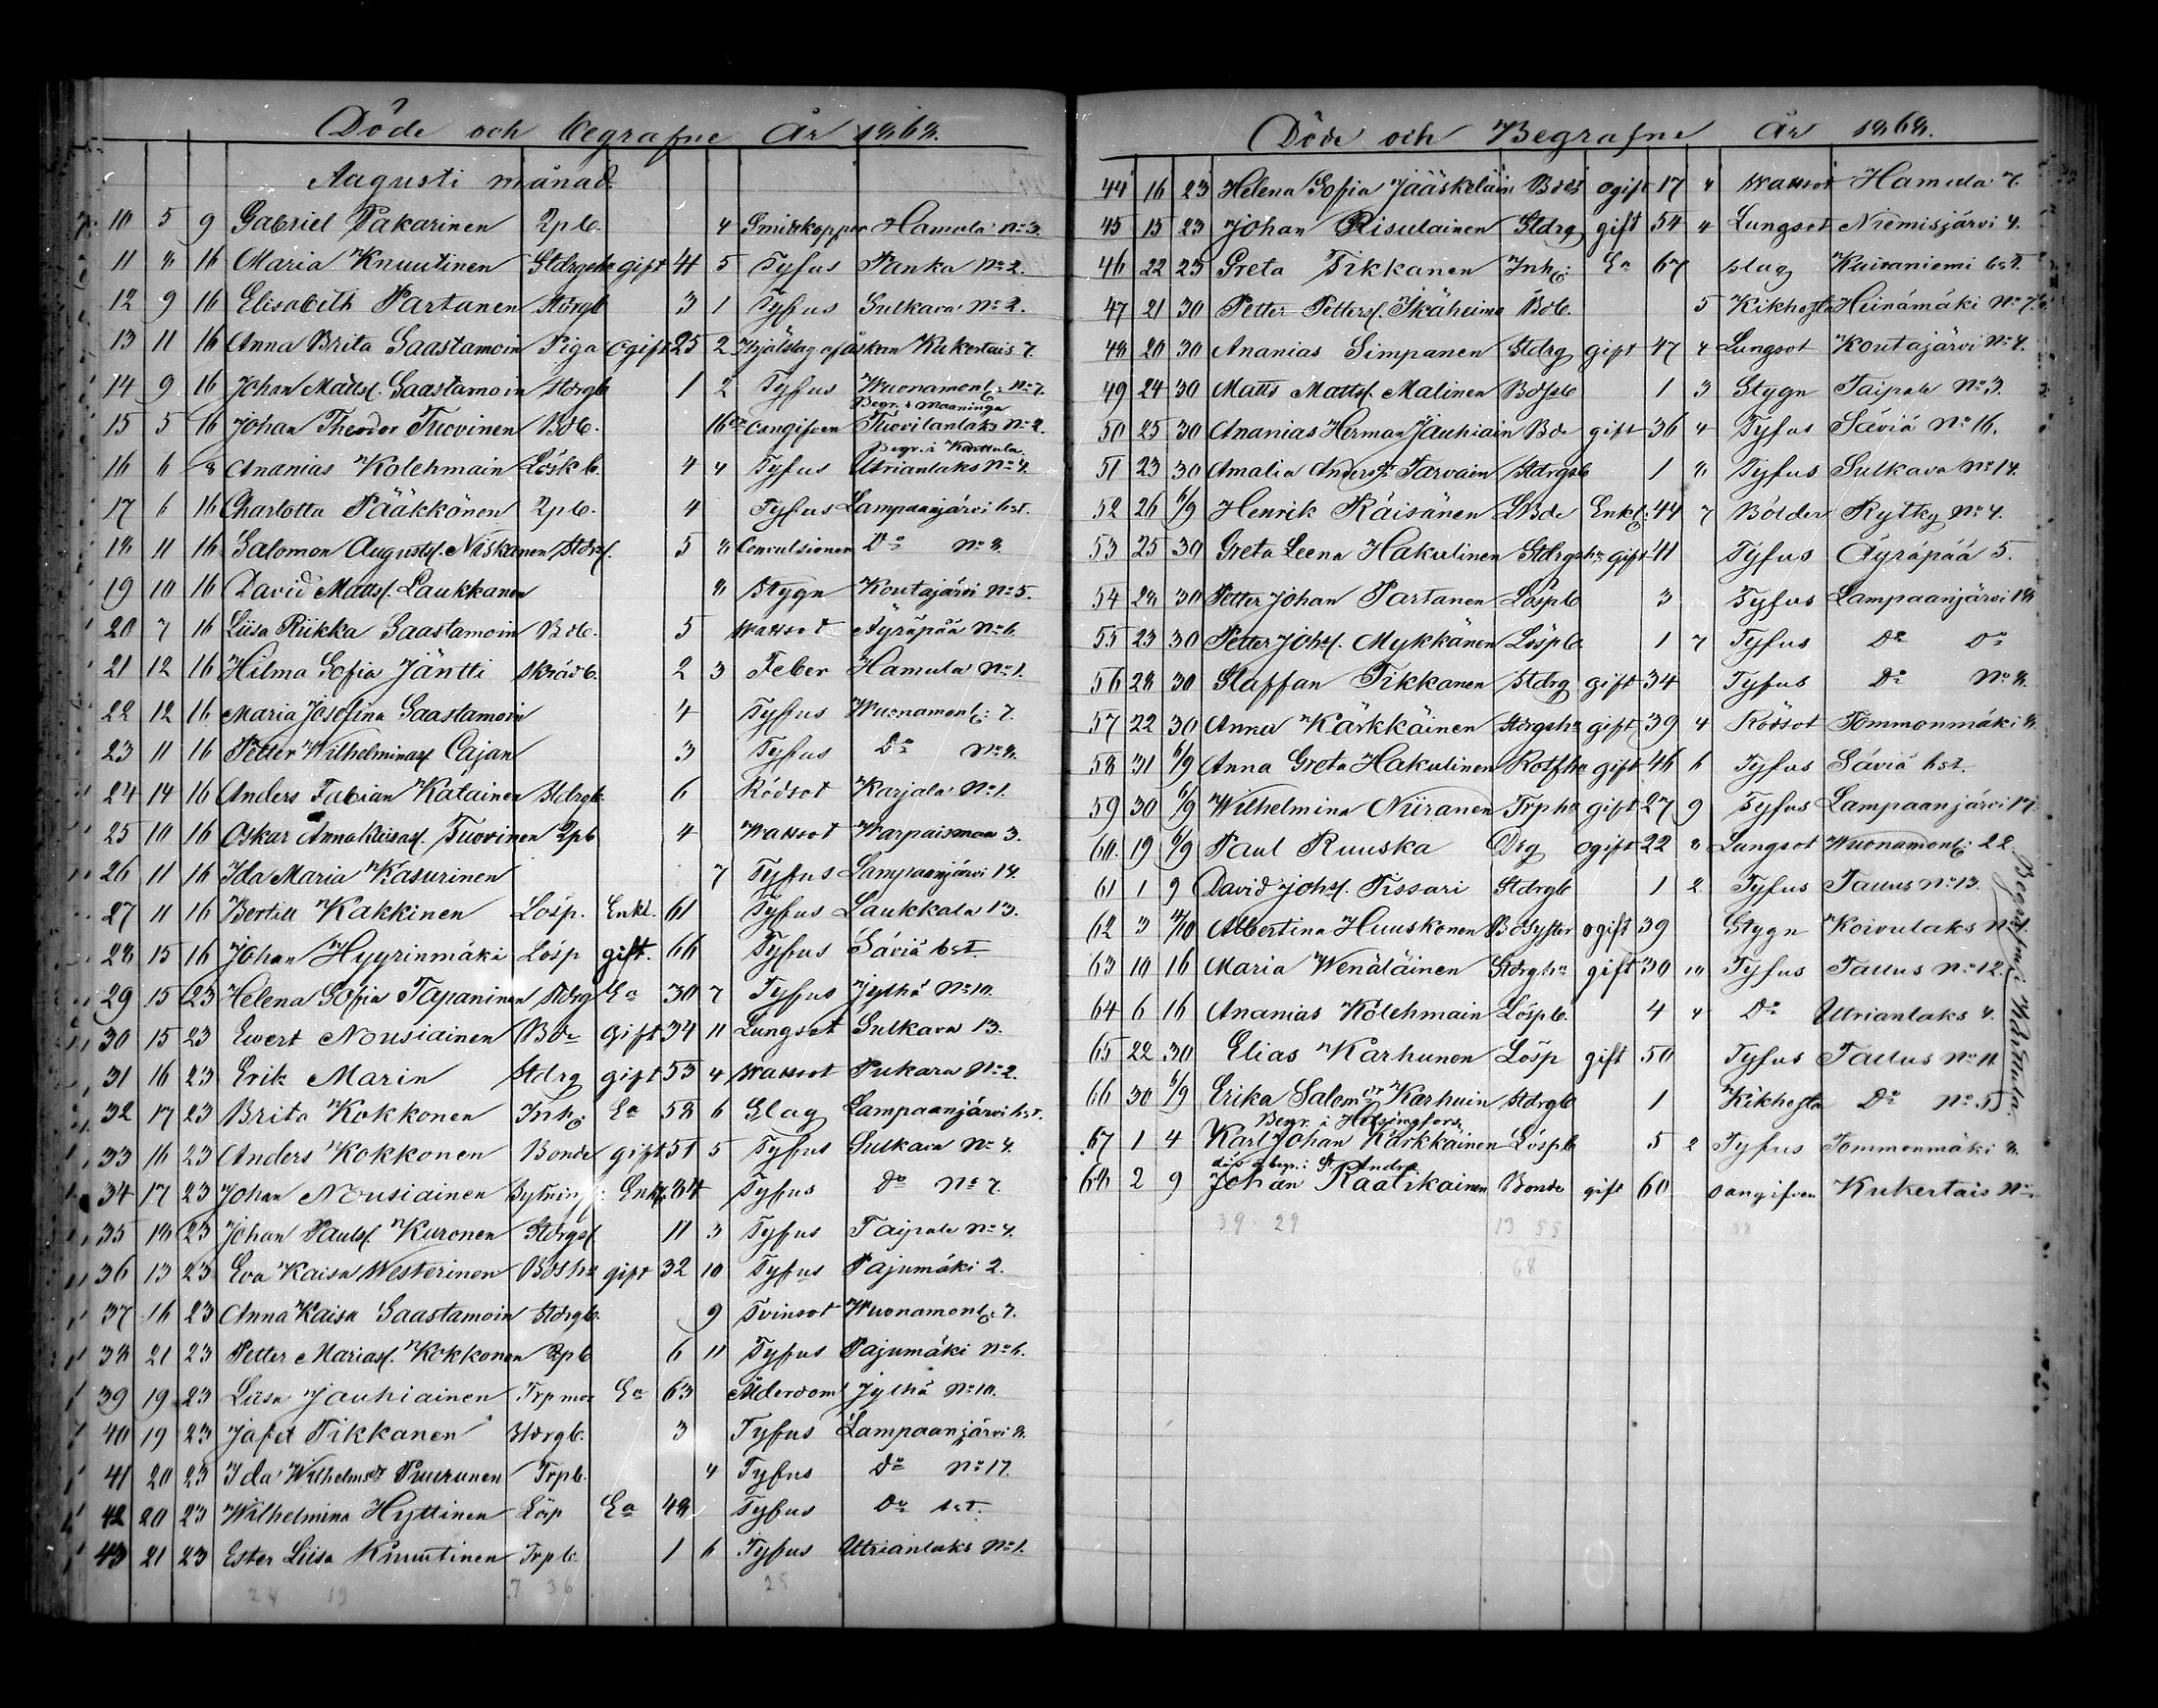 Döde och begrafne År 1868.
Augusti månad.
10 5 9 Gabriel Pakarinen Inh. 4 Smittkoppor Hamula No 3.
11 8 16 Maria Knuutinen Stdrgshu gift 41 5 Tyfus Panka No 2.
12 9 16 Elisabeth Partanen Stdrgb 3 1 Tyfus Sulkava No 2.
13 11 16 Anna Brita Saastamoin Piga ogift 25 2 Ihjälslag af åskan Kukertais 7.
14 9 16 Johan Matts. Saastamoin Stdrgb 1 2 Tyfus Wuonamonl: No 7.
Begr. i Maaninga
15 5 16 Johan Theodor Tuovinen Bdb. 16 oangifven Tuovilanlaks No 2.
Begr. i Karttula.
16 6 Ananias Kolehmain Löskb. 4 4 Tyfus Utrianlaks No 4.
17 6 16 Charlotta Pääkkönen 4 Tyfus Lampaanjärvi bst.
18 11 16 Salomon Augusts. Niskanen Stdrs. 5 8 Convulsioner Do No 8.
19 10 16 David Matts. Laukkanen 8 Stygn Koutajärvi No 5.
20 7 16 Liisa Riikka Saastamoin Bdb. 5 Wattsot Äyräpää No 6.
21 12 16 Hilma Sofia Jäntti Skrädb. 2 3 Feber Hamula No 1.
22 12 16 Maria Josefina Saastamoin 4 Tyfus Wuonamonl: 7.
23 11 16 Petter Wilhelminas Cajan 3 Tyfus Do No 8.
24 14 16 Anders Fabian Katainen Stdrgb. 6 Rödsot Karjala No 1.
25 10 16 Oskar Annakaisas. Tuovinen 4 Wattsot Warpaismaa 3.
26 11 16 Ida Maria Kasurinen 7 Tyfus Lampaanjärvi 14.
27 11 16 Bertill Kakkinen Lösp. Enkl. 61 Tyfus Laukkala 13.
28 15 16 Johan Hyyrinmäki Lösp gift. 66 Tyfus Säviä bst
29 15 23 Helena Sofia Tapaninen Stdrg Ea 30 7 Tyfus Jylhä No 10.
30 15 23 Ewert Nousiainen Bde gift 34 11 Lungsot Sulkava 13.
31 16 23 Erik Marin Stdrg gift 53 4 Wattsot Pukara No 2.
32 17 23 Brita Kokkonen Inh: Ea 58 6 Slag Lampaanjärvi bst.
33 16 23 Anders Kokkonen Bonde gift 51 5 Tyfus Sulkava No 4.
34 17 23 Johan Nousiainen Enkl 84 Tyfus Do No 7.
35 18 23 Johan Pauls. Kuronen Stdrgs. 11 3 Tyfus Taipale No 4.
36 13 23 Eva Kaisa Westerinen Bdshu gift 32 10 Tyfus Pajumäki 2.
37 16 23 Anna Kaisa Saastamoin Stdrgb. 9 Tvinsot Wuonamonl: 7.
38 21 23 Petter Marias. Kokkonen 6 11 Tyfus Pajumäki No 6.
39 19 23 Liisa Jauhiainen Trpmor Ea 63 Ålderdom Jylhä No 10.
40 19 23 Jafet Tikkanen Stdrgb. 3 Tyfus Lampaanjärvi 8.
41 20 23 Ida Wilhelmsdr Puurunen Trpb. 4 Tyfus Do No 17.
42 20 23 Wilhelmina Hyttinen Lösp Ea 48 Tyfus Do bst.
43 21 23 Ester Liisa Knuutinen Trpb. 1 6 Tyfus Utrianlaks No 1.
24 19 7 36 25
Döde och Begrafne År 1868.
44 16 23 Helena Sofia Jääskeläin Bdds ogift 17 4 Wattsot Hamula 7.
45 15 23 Johan Risulainen Stdrg gift 54 4 Lungsot Niemisjärvi 4.
46 22 23 Greta Tikkanen Inh: Ea 67 Slag Kuivaniemi bst.
47 21 30 Petter Petters. Ikäheimo Bdb. 5 Kikhosta Heinämäki No 7.
48 20 30 Ananias Simpanen Stdrg gift 47 4 Lungsot Koutajärvi No 4.
49 24 30 Matts Matts. Malinen Bdsb 1 3 Stygn Taipale No 3.
50 25 30 Ananias Herman Jauhiain Bde gift 36 4 Tyfus Säviä No 16.
51 23 30 Amalia Andersdr Tarvain Stdrgsb 1 8 Tyfus Sulkava No 14.
52 26 6/9 Henrik Räisänen LBde Enkl: 44 7 Bölder Rytky No 4.
53 25 30 Greta Leena Hakulinen Stdrgshu gift 41 Tyfus Äyräpää 5.
54 28 30 Petter Johan Partanen Löspb 3 Tyfus Lampaanjärvi 18
55 23 30 Petter Johs. Mykkänen Löspb. 1 7 Tyfus Do Do
56 28 30 Staffan Tikkanen Stdrg gift 34 Tyfus Do No 8.
57 22 30 Anna Kärkkäinen Stdrgshu gift 39 4 Rödsot Tommonmäki 8.
58 31 6/9 Anna Greta Hakulinen Rotfhu gift 46 6 Tyfus Säviä bst.
59 30 6/9 Wilhelmina Niiranen Trphu gift 27 9 Tyfus Lampaanjärvi 17.
60. 19 6/9 Paul Ruuska Drg ogift 22 8 Lungsot Wuonamonl: 22
61 1 9 David Johs. Tissari Stdrgb 1 2 Tyfus Tallus No 13.
62 3 Albertina Huuskonen Bdsyster ogift 39 Stygn Koivulaks
63 10 16 Maria Wenäläinen Stdrgshu gift 30 10 Tyfus Tallus No 12.
64 6 16 Ananias Kolehmain Löspb. 4 4 Do Utrianlaks 4.
65 22 30 Elias Karhunen Lösp gift 50 Tyfus Tallus No 11.
66 30 6/9 Erika Salomdr Karhuin Stdrgb 1 Kikhosta Do No 5
Begr. i Helsingfors
67 1 4 Karl Johan Kärkkäinen Löspb 5 2 Tyfus Tommonmäki 8.
död o begr. i St. Andrea
68 2 9 Johan Raatikainen Bonde gift 60 oangifven Kukertais No
39 29 13 55 38
68
Begrafne i Karttula.